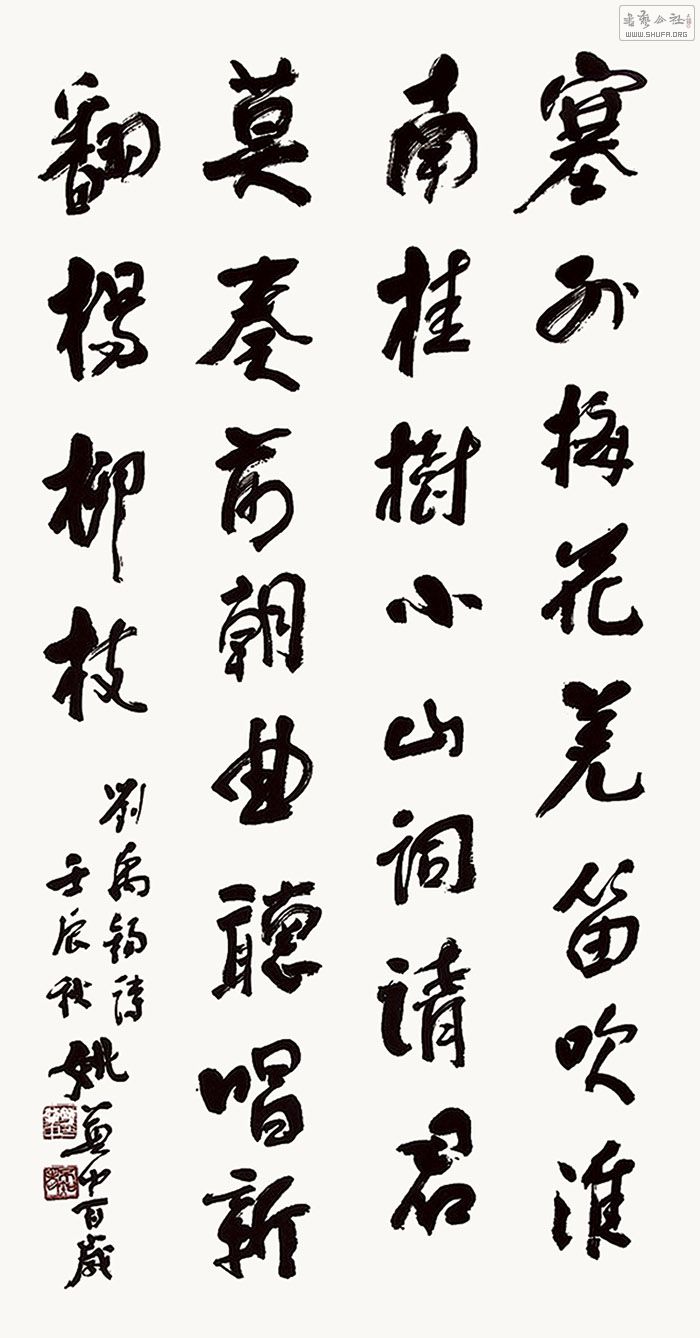 塞外梅花羌笛吹淮
南桂樹小山詞請君
莫奏前朝曲聽唱新
翻楊柳枝
劉禹錫詩
壬辰秋
姚奠中百歲
書藝公社
WWW.SHUFA.ORG